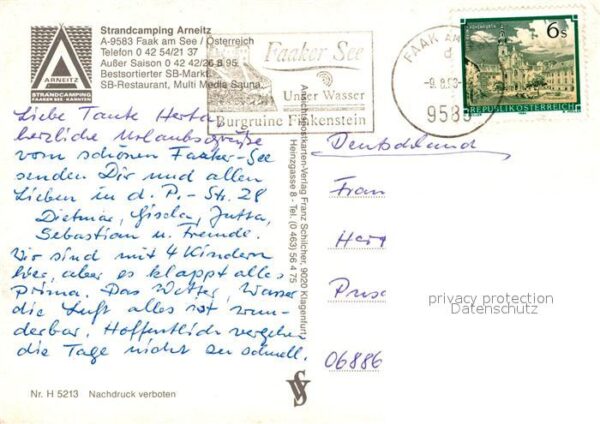 Strandcamping Arneitz
A-9583 Faak am See / Österreich
Telefon 0 42 54/21 37
Außer Saison 0 42 42/26 8 95
Bestsortierter SB-Markt
SB-Restaurant, Multi Media Sauna
ARNEITZ
STRANDCAMPING
FAAKER SEE · KÄRNTEN
Faaker See
Unser Wasser
Burgruine Finkenstein
FAAK AM
d
-9.8.93-
9583
6s
REPUBLIK ÖSTERREICH
Liebe Tante Herta,
herzliche Urlaubsgrüße
vom schönen Faaker-See
senden Dir und allen
Lieben in d. P.-Str. 28
Dietmar, Gisela, Jutta,
Sebastian u. Freunde.
Wir sind mit 4 Kindern
hier, aber es klappt alles
prima. Das Wetter, Wasser
die Luft alles ist wun-
derbar. Hoffentlich vergehen
die Tage nicht zu schnell.
Ansichtspostkarten-Verlag Franz Schilcher, 9020 Klagenfurt
Heinzgasse 8 - Tel. (0 463) 56 4 75
Deutschland
Frau
06886
privacy protection
Datenschutz
Nr. H 5213 Nachdruck verboten